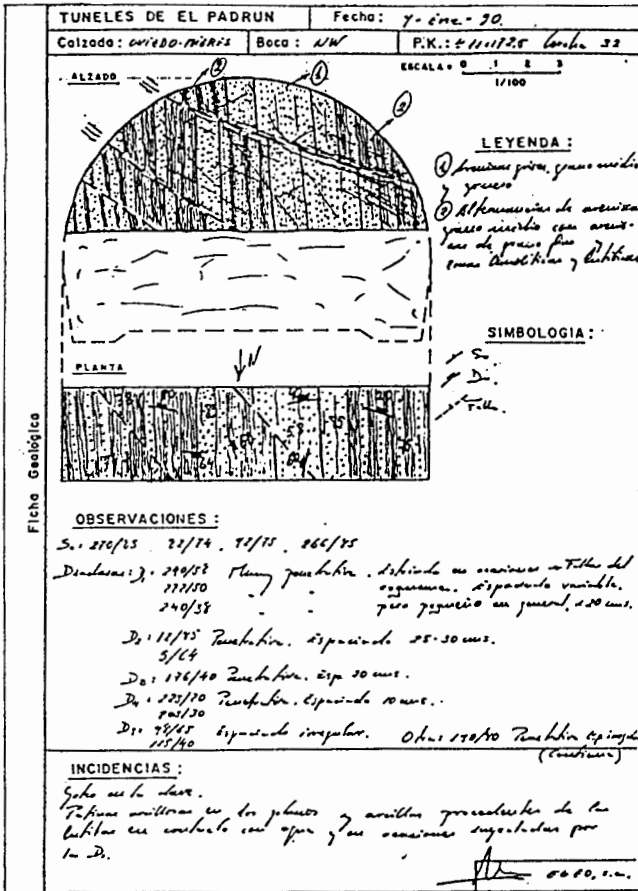 TUNELES DE EL PADRUN Fecha: 7-Ene-90.
Calzada: OVIEDO-MIERES Boca: NW P.K.:
ESCALA = 0 1 2 3
1/100
ALZADO
② ① ②
LEYENDA:
① Areniscas grises, grano medio
y grueso
② Alternancias de arenisca
grano medio con arenis-
cas de grano fino y
zonas limolíticas y lutíticas
SIMBOLOGIA:
So
D.
Falla.
N
PLANTA
Ficha Geológica
OBSERVACIONES:
So: 270/85 82/74 . 92/75 . 266/85
Diaclasas: D1: 240/58 Muy penetrativa.
222/50 " " espaciado variable,
240/58 " " pero pequeño en general, ≤20 cms.
D2: 12/85 Penetrativa. Espaciado 25-30 cms.
5/64
D3: 176/40 Penetrativa. Esp 20 cms.
D4: 225/70 Penetrativa. Espaciado 10 cms.
205/30
D5: 98/65 Espaciado irregular. Otras: 170/80 Penetrativa
115/40 (Continua)
INCIDENCIAS:
Goteo en la clave.
Patinas arcillosas en los planos y arcillas procedentes de las
lutitas en contacto con agua y en ocasiones inyectadas por
las D1.
EGEO, s.a.